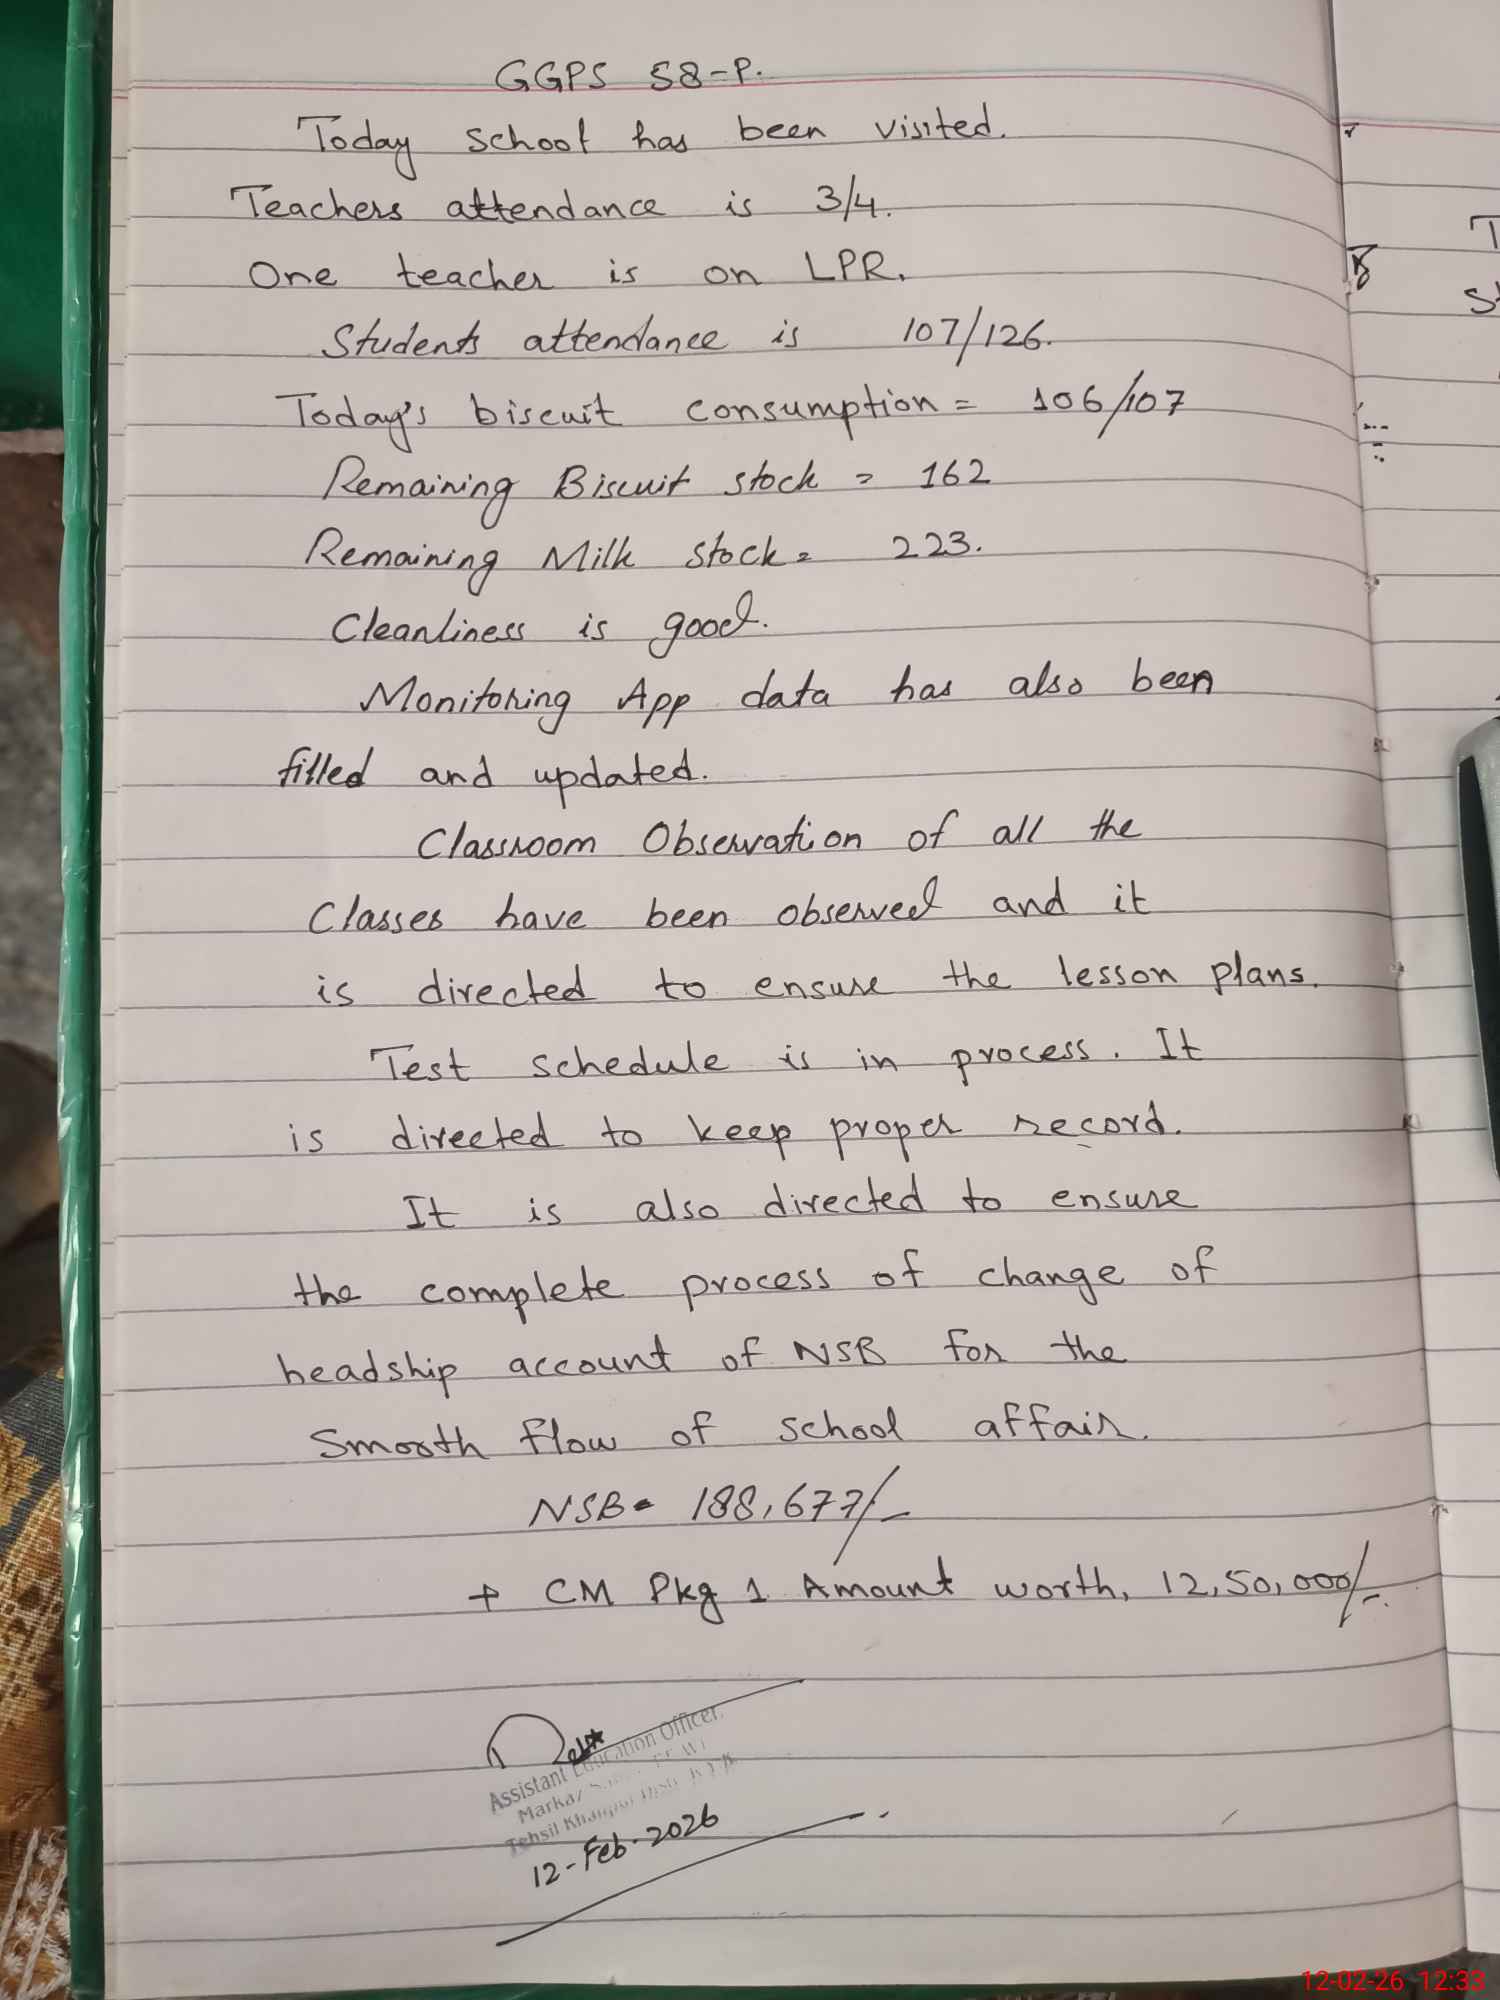 GGPS 58-P.
Today school has been visited.
Teachers attendance is 3/4.
One teacher is on LPR.
Students attendance is 107/126.
Today's biscuit consumption = 106/107
Remaining Biscuit stock = 162
Remaining Milk stock = 223.
Cleanliness is good.
Monitoring App data has also been
filled and updated.
Classroom Observation of all the
Classes have been observed and it
is directed to ensure the lesson plans.
Test schedule is in process. It
is directed to keep proper record.
It is also directed to ensure
the complete process of change of
headship account of NSB for the
Smooth flow of school affair.
NSB = 188,677/-
+ CM Pkg 1 Amount worth, 12,50,000/-.
Assistant Education Officer,
Markaz
Tehsil Khanpur Distt. R.Y.K
12-Feb-2026
12-02-26 12:33